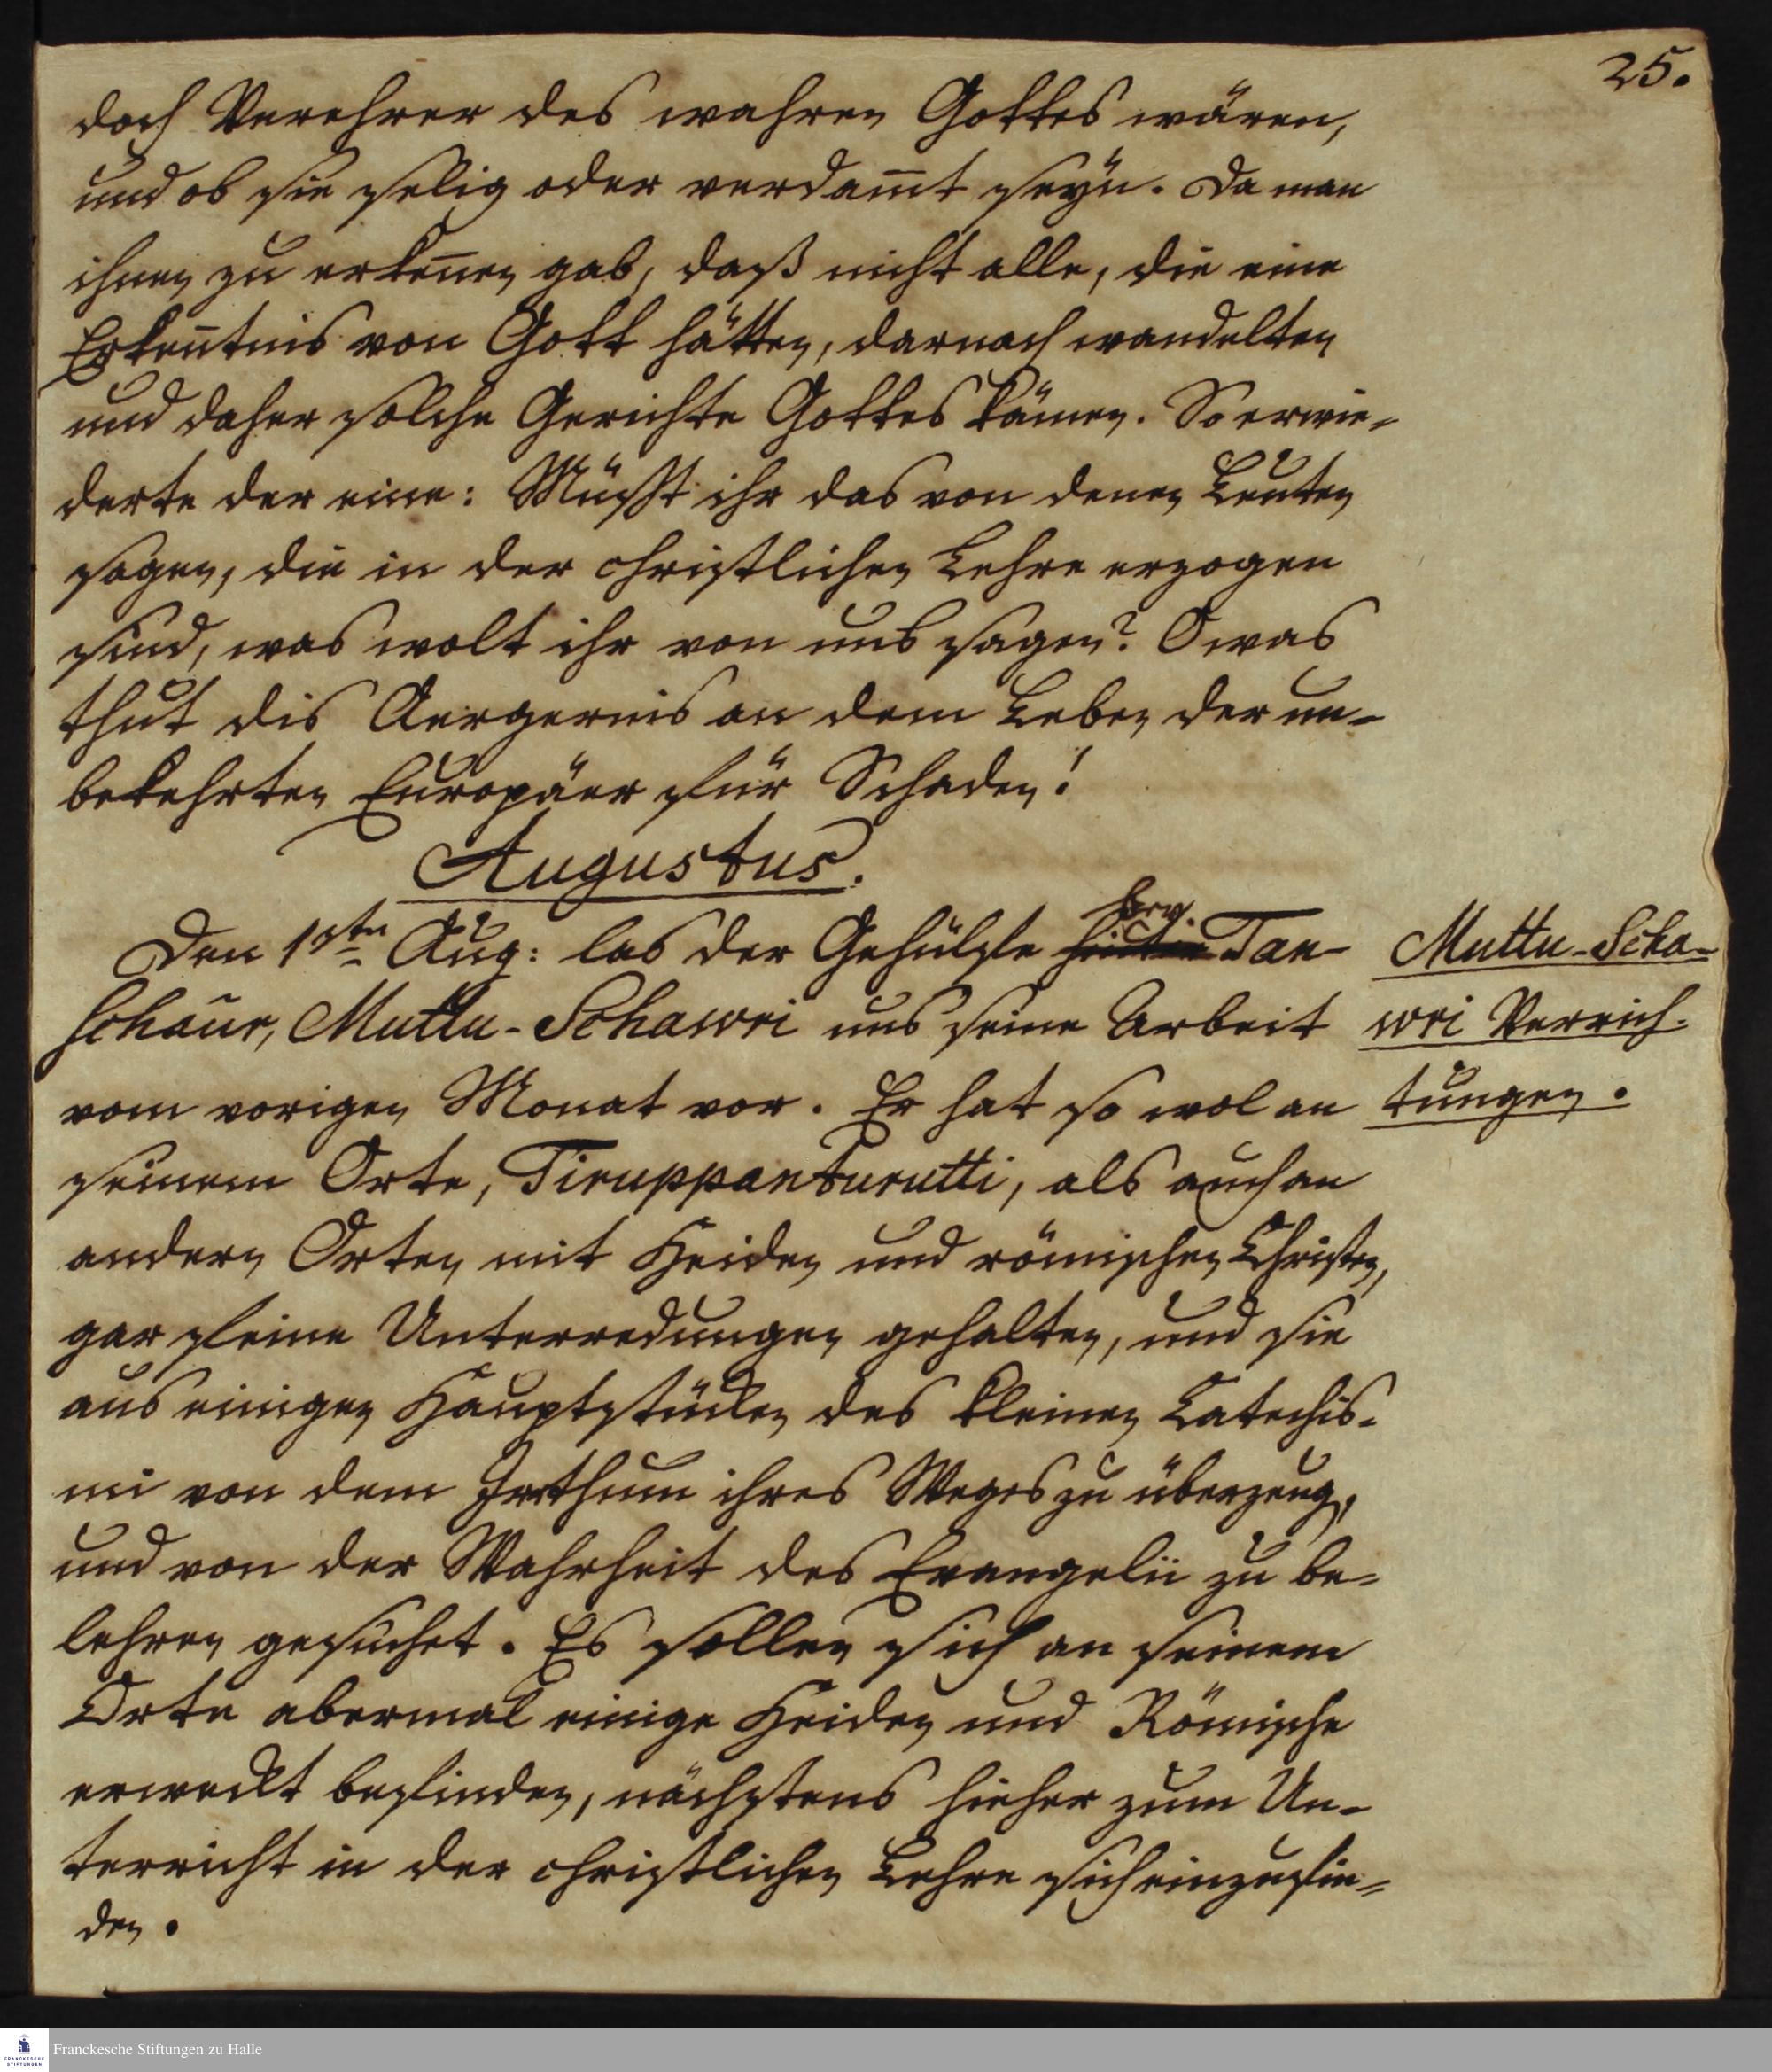 25.
doch Verehrer des wahren Gottes wären,
und ob sie selig oder verdam̅t seyn. Da man
ihnen zu erken̅en gab, daß nicht alle, die eine
Erken̅tnis von Gott hätten, darnach wandelten
und daher solche Gerichte Gottes kämen. So erwie-
derte der eine: Müsst ihr das von denen Leuten
sagen, die in der christlichen Lehre erzogen
sind, was wolt ihr von uns sagen? O was
thut dis Aergernis an dem Leben der un-
bekehrten Europäer für Schaden!
Augustus.
Den 1sten Aug: las der Gehülfe Tan-
schaur, Muttu-Schawri uns seine Arbeit
vom vorigen Monat vor. Er hat so wol an
seinem Orte, Tiruppanturutti, als auch an
andern Orten mit Heiden und römischen Christen,
gar feine Unterredungen gehalten, und sie
aus einigen Hauptstücken des kleinen Catechis-
mi von dem Irrthum ihres Weges zu überzeug,
und von der Wahrheit des Evangelii zu be-
lehren gesuchet. Es sollen sich an seinem
Orte abermal einige Heiden und Römische
erweckt befinden, nächstens hieher zum Un-
terricht in der christlichen Lehre sich einzufin-
den.
Muttu-Scha-
wri Verrich-
tungen.
Franckesche Stiftungen zu Halle
FRANCKESCHE
STIFTUNGEN